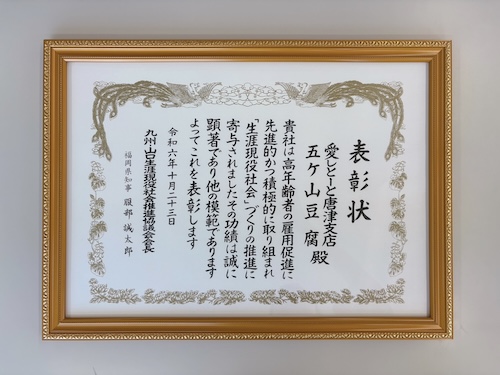 表彰状
愛しとーと唐津支店
五ケ山豆腐 殿
貴社は高年齢者の雇用促進に
先進的かつ積極的に取り組まれ
「生涯現役社会」づくりの推進に
寄与されましたその功績は誠に
顕著であり他の模範であります
よってこれを表彰します
令和六年十月二十三日
九州・山口生涯現役社会推進協議会会長
福岡県知事 服部誠太郎